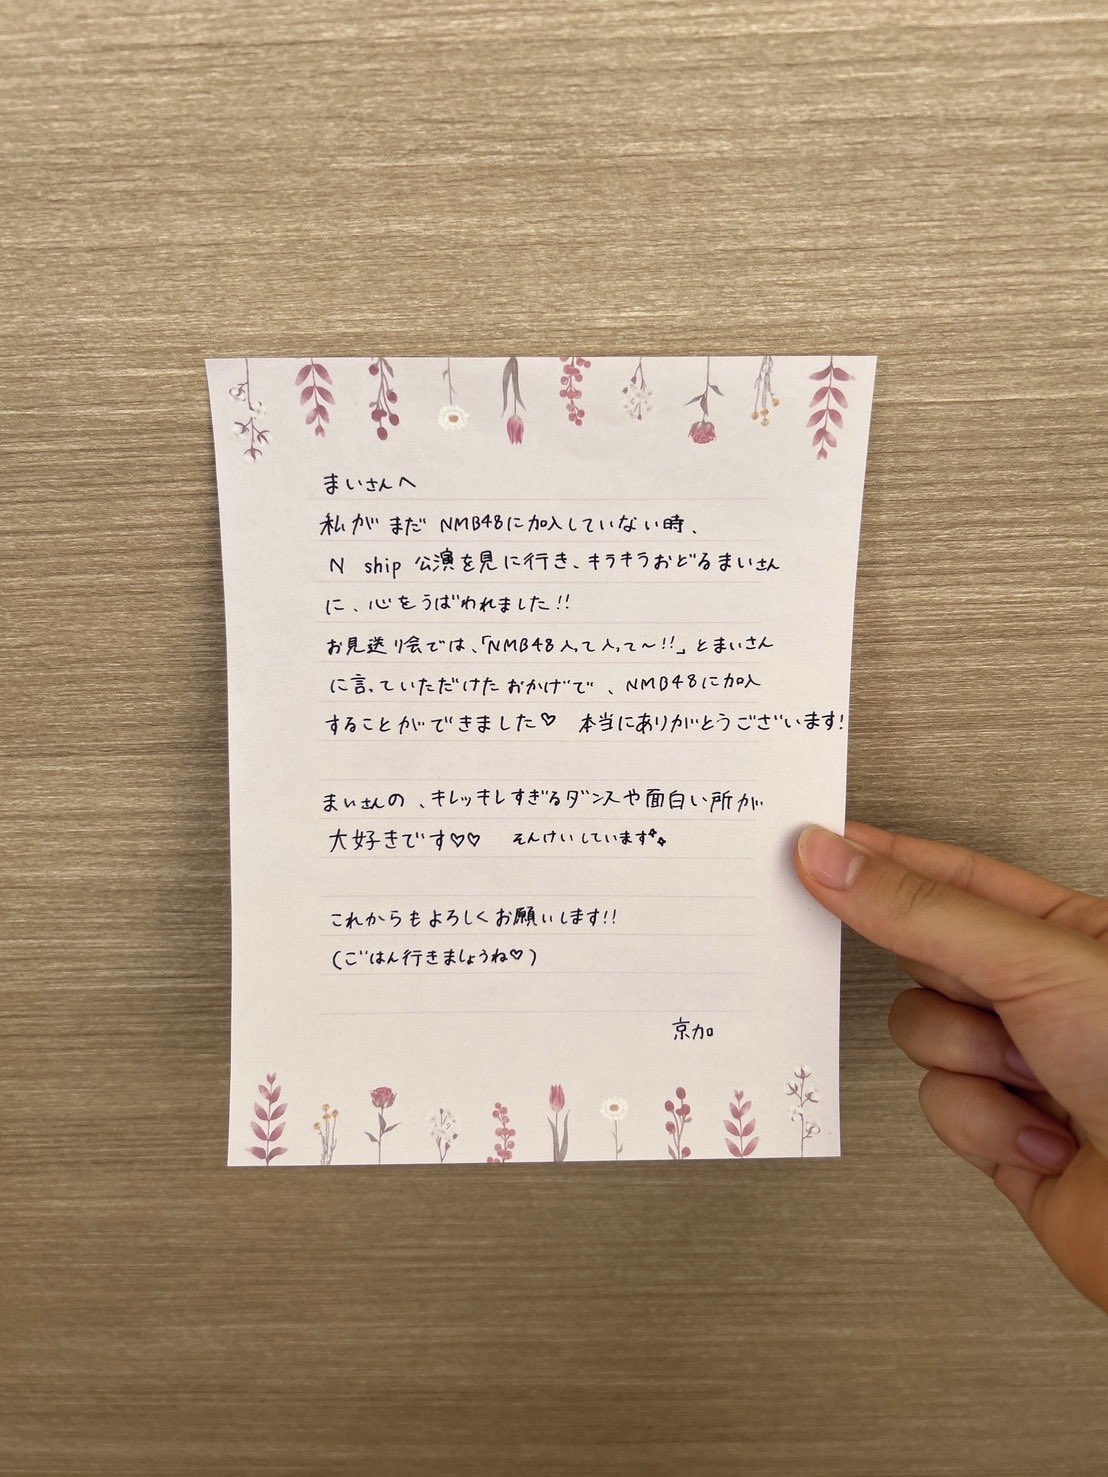 まいさんへ
私が まだ NMB48に加入していない時、
N ship 公演を見に行き、キラキラおどるまいさん
に、心をうばわれました!!
お見送り会では、「NMB48入って入って〜!!」とまいさん
に言っていただけた おかげで、NMB48に加入
することができました♡ 本当にありがとうございます!
まいさんの、キレッキレすぎるダンスや面白い所が
大好きです♡♡ そんけいしています✨
これからもよろしくお願いします!!
(ごはん行きましょうね♡)
京加